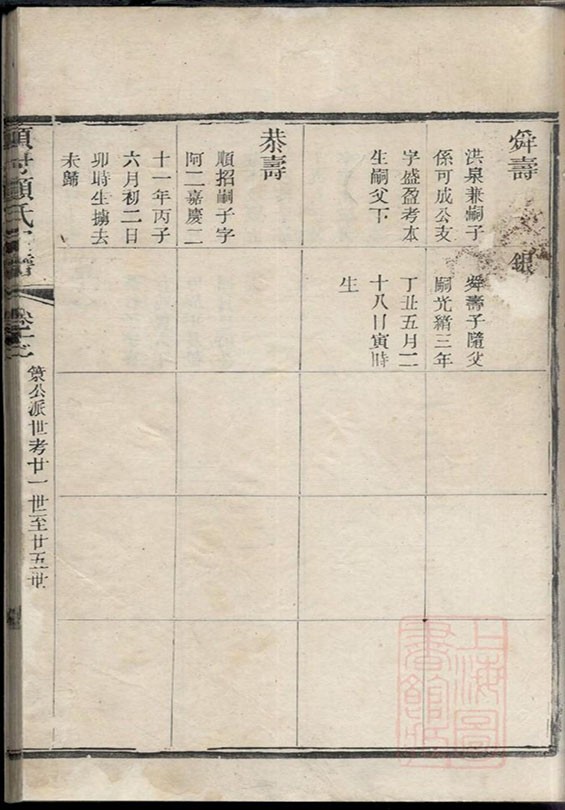 舜壽
洪泉兼嗣子
係可成公支
字盛盈考本
生嗣父下
銀
舜壽子隨父
嗣光緒三年
丁丑五月二
十八日寅時
生
恭壽
順招嗣子字
阿二嘉慶二
十一年丙子
六月初二日
卯時生擄去
未歸
顧氏
卷十
策公派世考廿一世至廿五世
上海圖書館藏